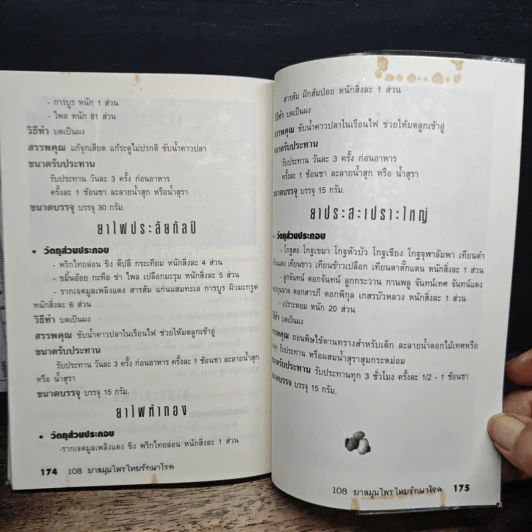 - การบูร หนัก 1 ส่วน
- ไพล หนัก 81 ส่วน
วิธีทำ บดเป็นผง
สรรพคุณ แก้จุกเสียด แก้ระดูไม่ปรกติ ขับน้ำคาวปลา
ขนาดรับประทาน
รับประทาน วันละ 3 ครั้ง ก่อนอาหาร
ครั้งละ 1 ช้อนชา ละลายน้ำสุก หรือน้ำสุรา
ขนาดบรรจุ บรรจุ 30 กรัม.
ยาไฟประลัยกัลป์
• วัตถุส่วนประกอบ
- พริกไทยล่อน ขิง ดีปลี กระเทียม หนักสิ่งละ 4 ส่วน
- ขมิ้นอ้อย กะทือ ข่า ไพล เปลือกมะรุม หนักสิ่งละ 5 ส่วน
- รากเจตมูลเพลิงแดง สารส้ม แก่นแสมทะเล การบูร ผิวมะกรูด
หนักสิ่งละ 6 ส่วน
วิธีทำ บดเป็นผง
สรรพคุณ ขับน้ำคาวปลาในเรือนไฟ ช่วยให้มดลูกเข้าอู่
ขนาดรับประทาน
รับประทาน วันละ 3 ครั้ง ก่อนอาหาร ครั้งละ 1 ช้อนชา ละลายน้ำสุก
หรือ น้ำสุรา
ขนาดบรรจุ บรรจุ 15 กรัม.
ยาไฟห้ากอง
• วัตถุส่วนประกอบ
-รากเจตมูลเพลิงแดง ขิง พริกไทยล่อน หนักสิ่งละ 1 ส่วน
174 108 ยาสมุนไพรไทยรักษาโรค
สารส้ม ฝักส้มป่อย หนักสิ่งละ 1 ส่วน
วิธีทำ บดเป็นผง
สรรพคุณ ขับน้ำคาวปลาในเรือนไฟ ช่วยให้มดลูกเข้าอู่
ขนาดรับประทาน
รับประทาน วันละ 3 ครั้ง ก่อนอาหาร
ครั้งละ 1 ช้อนชา ละลายน้ำสุก หรือ น้ำสุรา
ขนาดบรรจุ บรรจุ 15 กรัม.
ยาประสะเปราะใหญ่
• วัตถุส่วนประกอบ
- โกฐสอ โกฐเขมา โกฐหัวบัว โกฐเชียง โกฐจุฬาลัมพา เทียนดำ
เทียนแดง เทียนขาว เทียนข้าวเปลือก เทียนตาตั๊กแตน หนักสิ่งละ 1 ส่วน
- ลูกจันทน์ ดอกจันทน์ ลูกกระวาน กานพลู จันทน์เทศ จันทน์แดง
ดอกสารภี ดอกพิกุล เกสรบัวหลวง หนักสิ่งละ 1 ส่วน
- เปราะหอม หนัก 20 ส่วน
วิธีทำ บดเป็นผง
สรรพคุณ ถอนพิษไข้ตานทรางสำหรับเด็ก ละลายน้ำดอกไม้เทศหรือ
รับประทาน หรือผสมน้ำสุราสุมกระหม่อม
ขนาดรับประทาน รับประทานทุก 3 ชั่วโมง ครั้งละ 1/2 - 1 ช้อนชา
ขนาดบรรจุ บรรจุ 15 กรัม.
108 ยาสมุนไพรไทยรักษาโรค 175